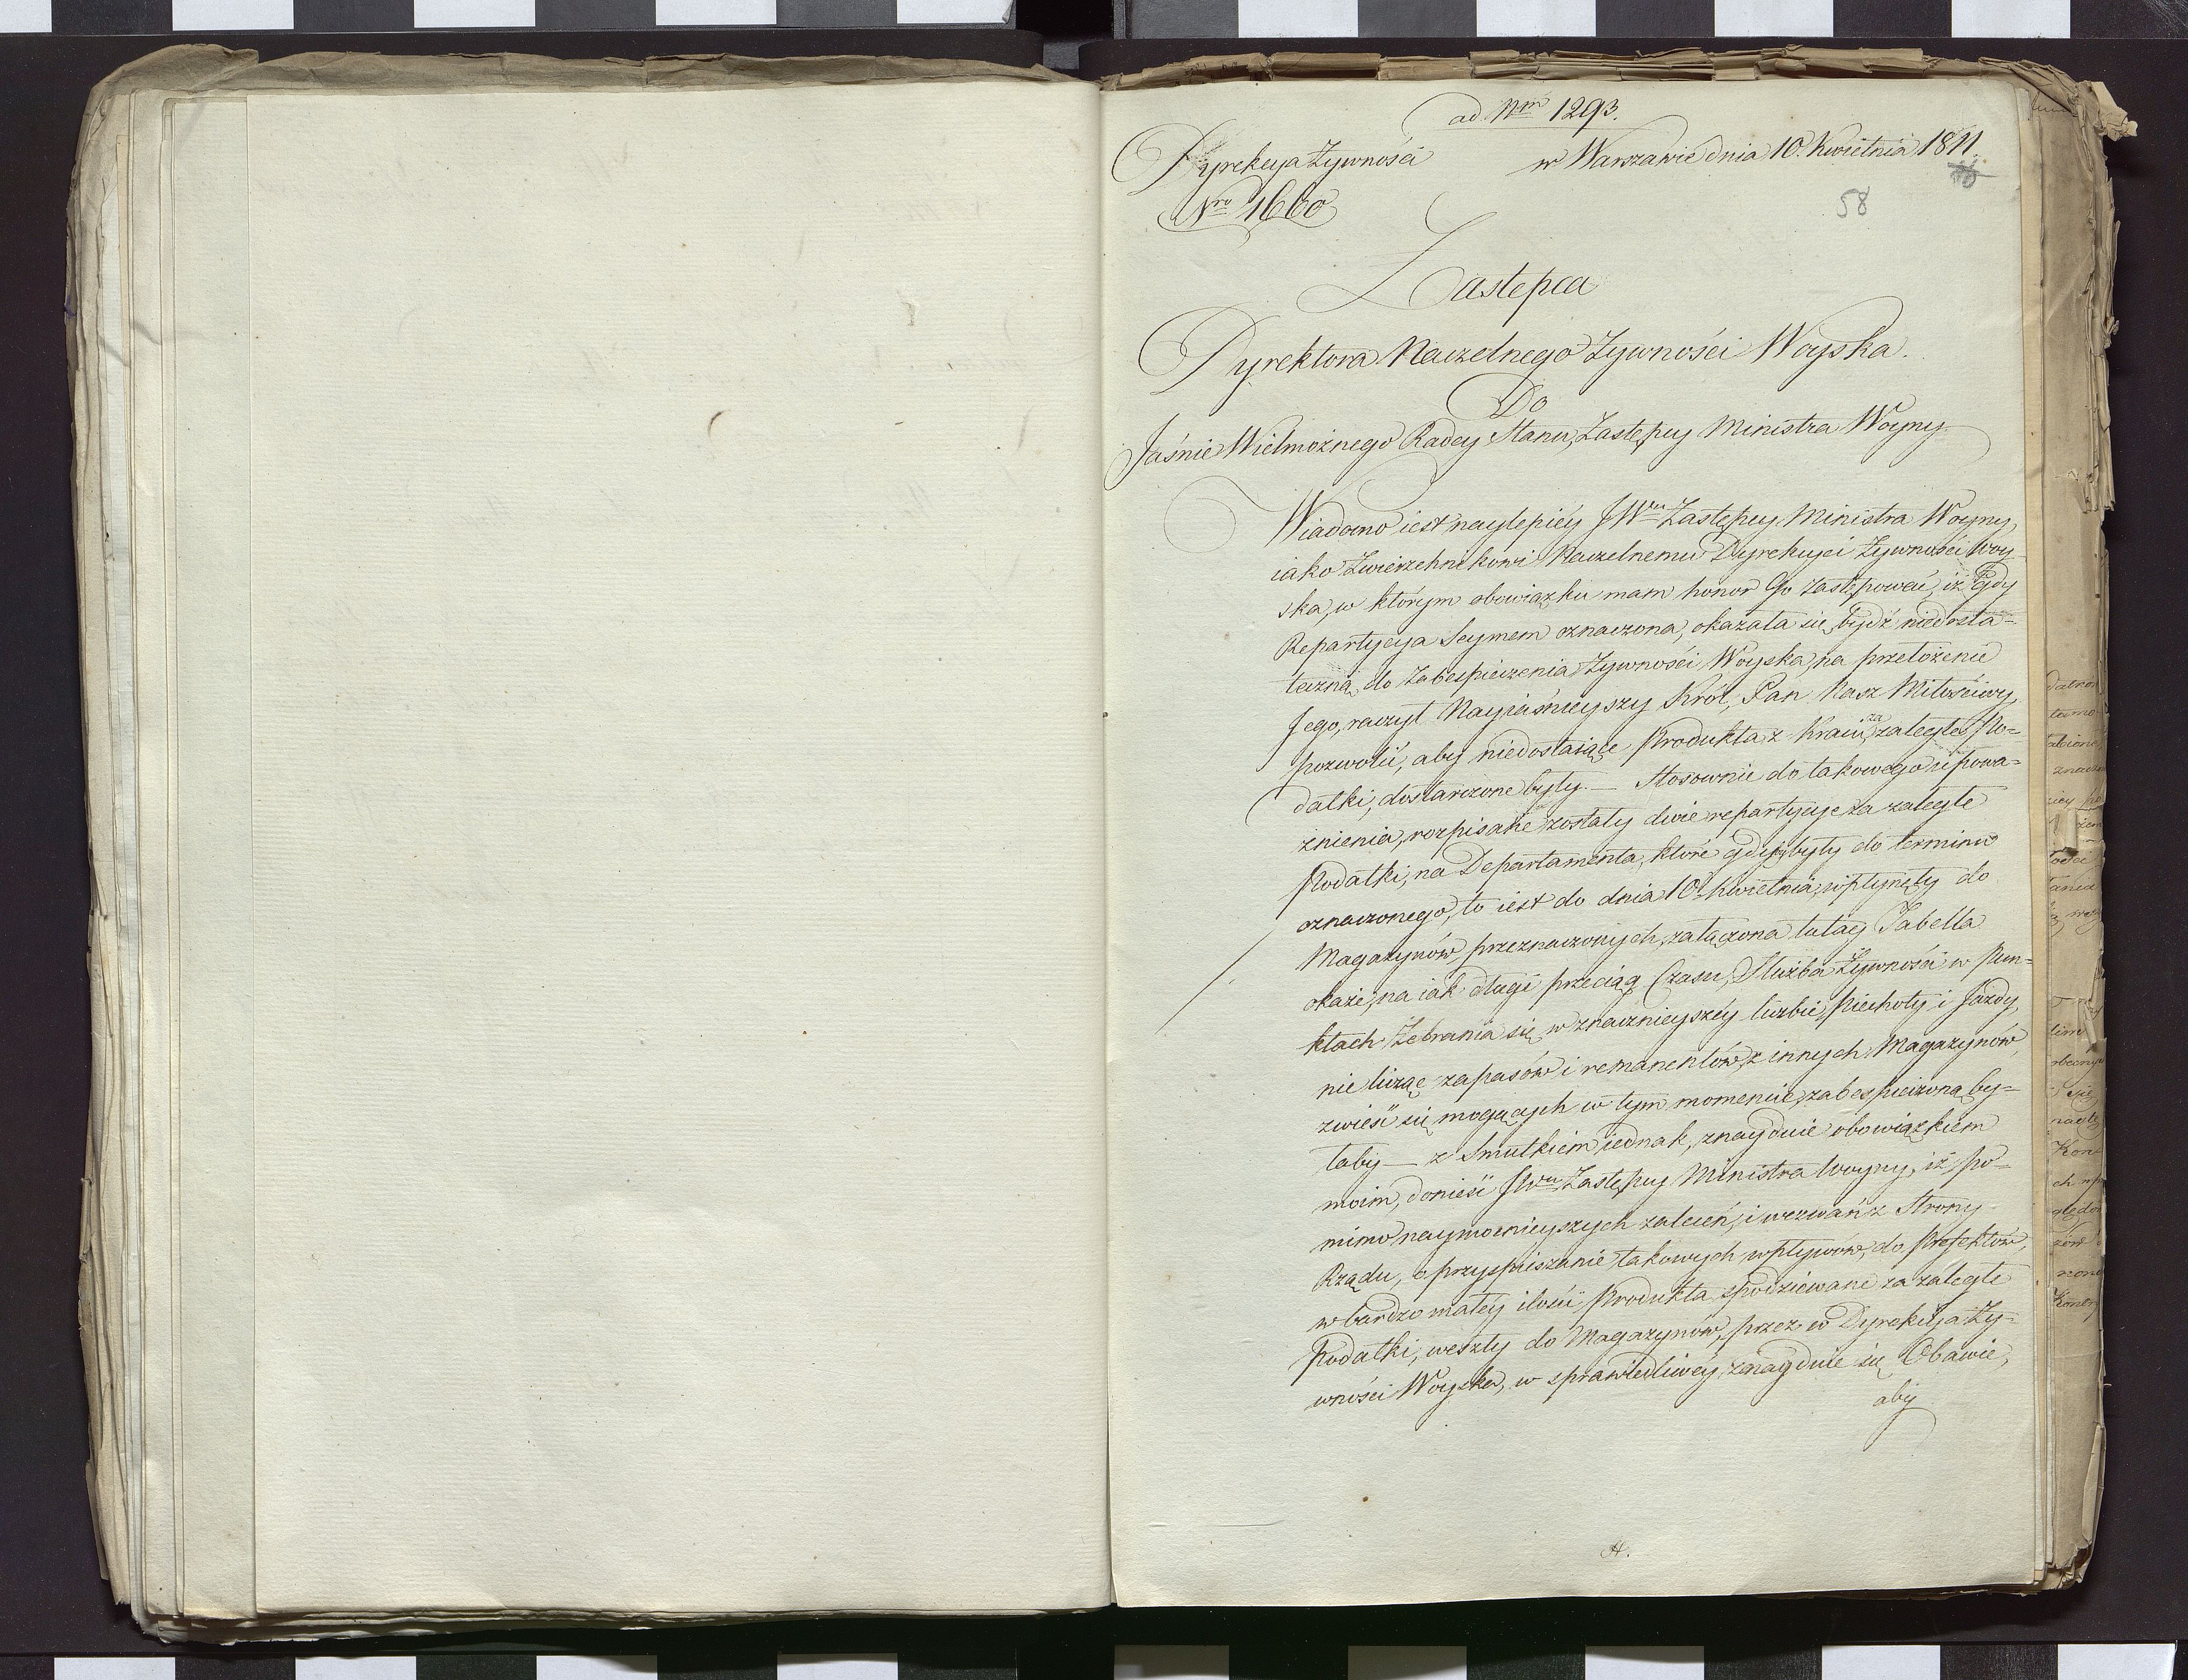 ad Nrm 1293.
Dyrekcya Żywności w Warszawie dnia 10. Kwietnia 1811.
Nro 1660
58
Zastępca
Dyrektora Naczelnego Żywności Woyska.
Do
Jaśnie Wielmożnego Radcy Stanu, Zastępcy Ministra Woyny.
Wiadomo iest naylepiéy JWmu Zastępcy Ministra Woyny,
iako Zwierzchnikowi Naczelnemu Dyrekcyi Żywności Woy-
ska, w którym obowiązku mam honor Go zastępować, iż Gdy
Repartycya Seymem oznaczona, okazała się bydź niedosta=
teczną, do Zabespieczenia Żywności Woyska, na przełożenie
Jego, raczył Nayiaśnieyszy Król, Pan Nasz Miłościwy,
pozwolić, aby niedostaiące Produkta z Kraiu, za zaległe Po=
datki, dostarczone były. — Stosownie do takowego upowa=
żnienia, rozpisane zostały dwie repartycye za zaległe
Podatki, na Departamenta, które gdyby były do terminu
oznaczonego, to iest do dnia 10. Kwietnia, wpłynęły do
Magazynów przeznaczonych, załączona tutay Tabella
okaże, na iak długi przeciąg Czasu, Służba Żywności w Pun=
ktach Zebrania się, w znacznieyszéy liczbie, Piechoty i Jazdy,
nie licząc zapasów i remanentów, z innych Magazynów,
zwieść się mogących w tym momencie, zabespieczoną by=
łaby — z Smutkiem iednak, znayduię obowiązkiem
moim, donieść JWmu Zastępcy Ministra Woyny, iż po=
mimo naymocnieyszych zaleceń, i wezwań z Strony
Rządu, o przyspieszenie takowych wpływów, do Prefektów,
w bardzo małéy ilości Produkta spodziewane za zaległe
Podatki, weszły do Magazynów, przez co Dyrekcya Ży=
wności Woyska, w sprawiedliwéy znayduie się Obawie,
aby